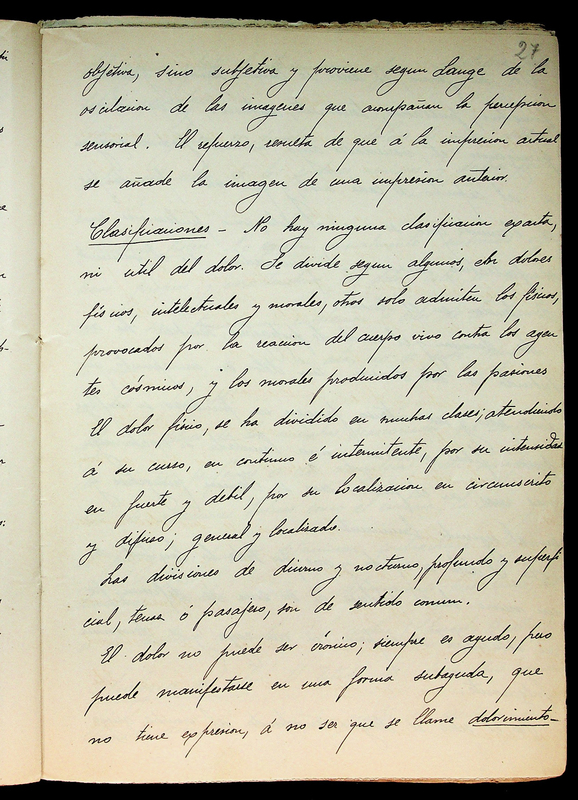 27
objetiva, sino subjetiva y proviene segun Lange de la
oscilacion de las imagenes que acompañan la percepcion
sensorial. El refuerzo, resulta de que á la impresion actual
se añade la imagen de una impresion anterior.
Clasificaciones - No hay ninguna clasificacion exacta,
ni util del dolor. Se divide segun algunos, en dolores
físicos, intelectuales y morales, otros solo admiten los físicos,
provocados por la reaccion del cuerpo vivo contra los agen
tes cósmicos, y los morales producidos por las pasiones
El dolor físico, se ha dividido en muchas clases; atendiendo
á su curso, en continuo é intermitente, por su intensidad
en fuerte y debil, por su localizacion en circunscrito
y difuso; general y localizado.
Las divisiones de diurno y nocturno, profundo y superfi
cial, tenaz ó pasajero, son de sentido comun.
El dolor no puede ser crónico; siempre es agudo, pero
puede manifestarse en una forma subaguda, que
no tiene expresion, á no ser que se llame dolorimiento-